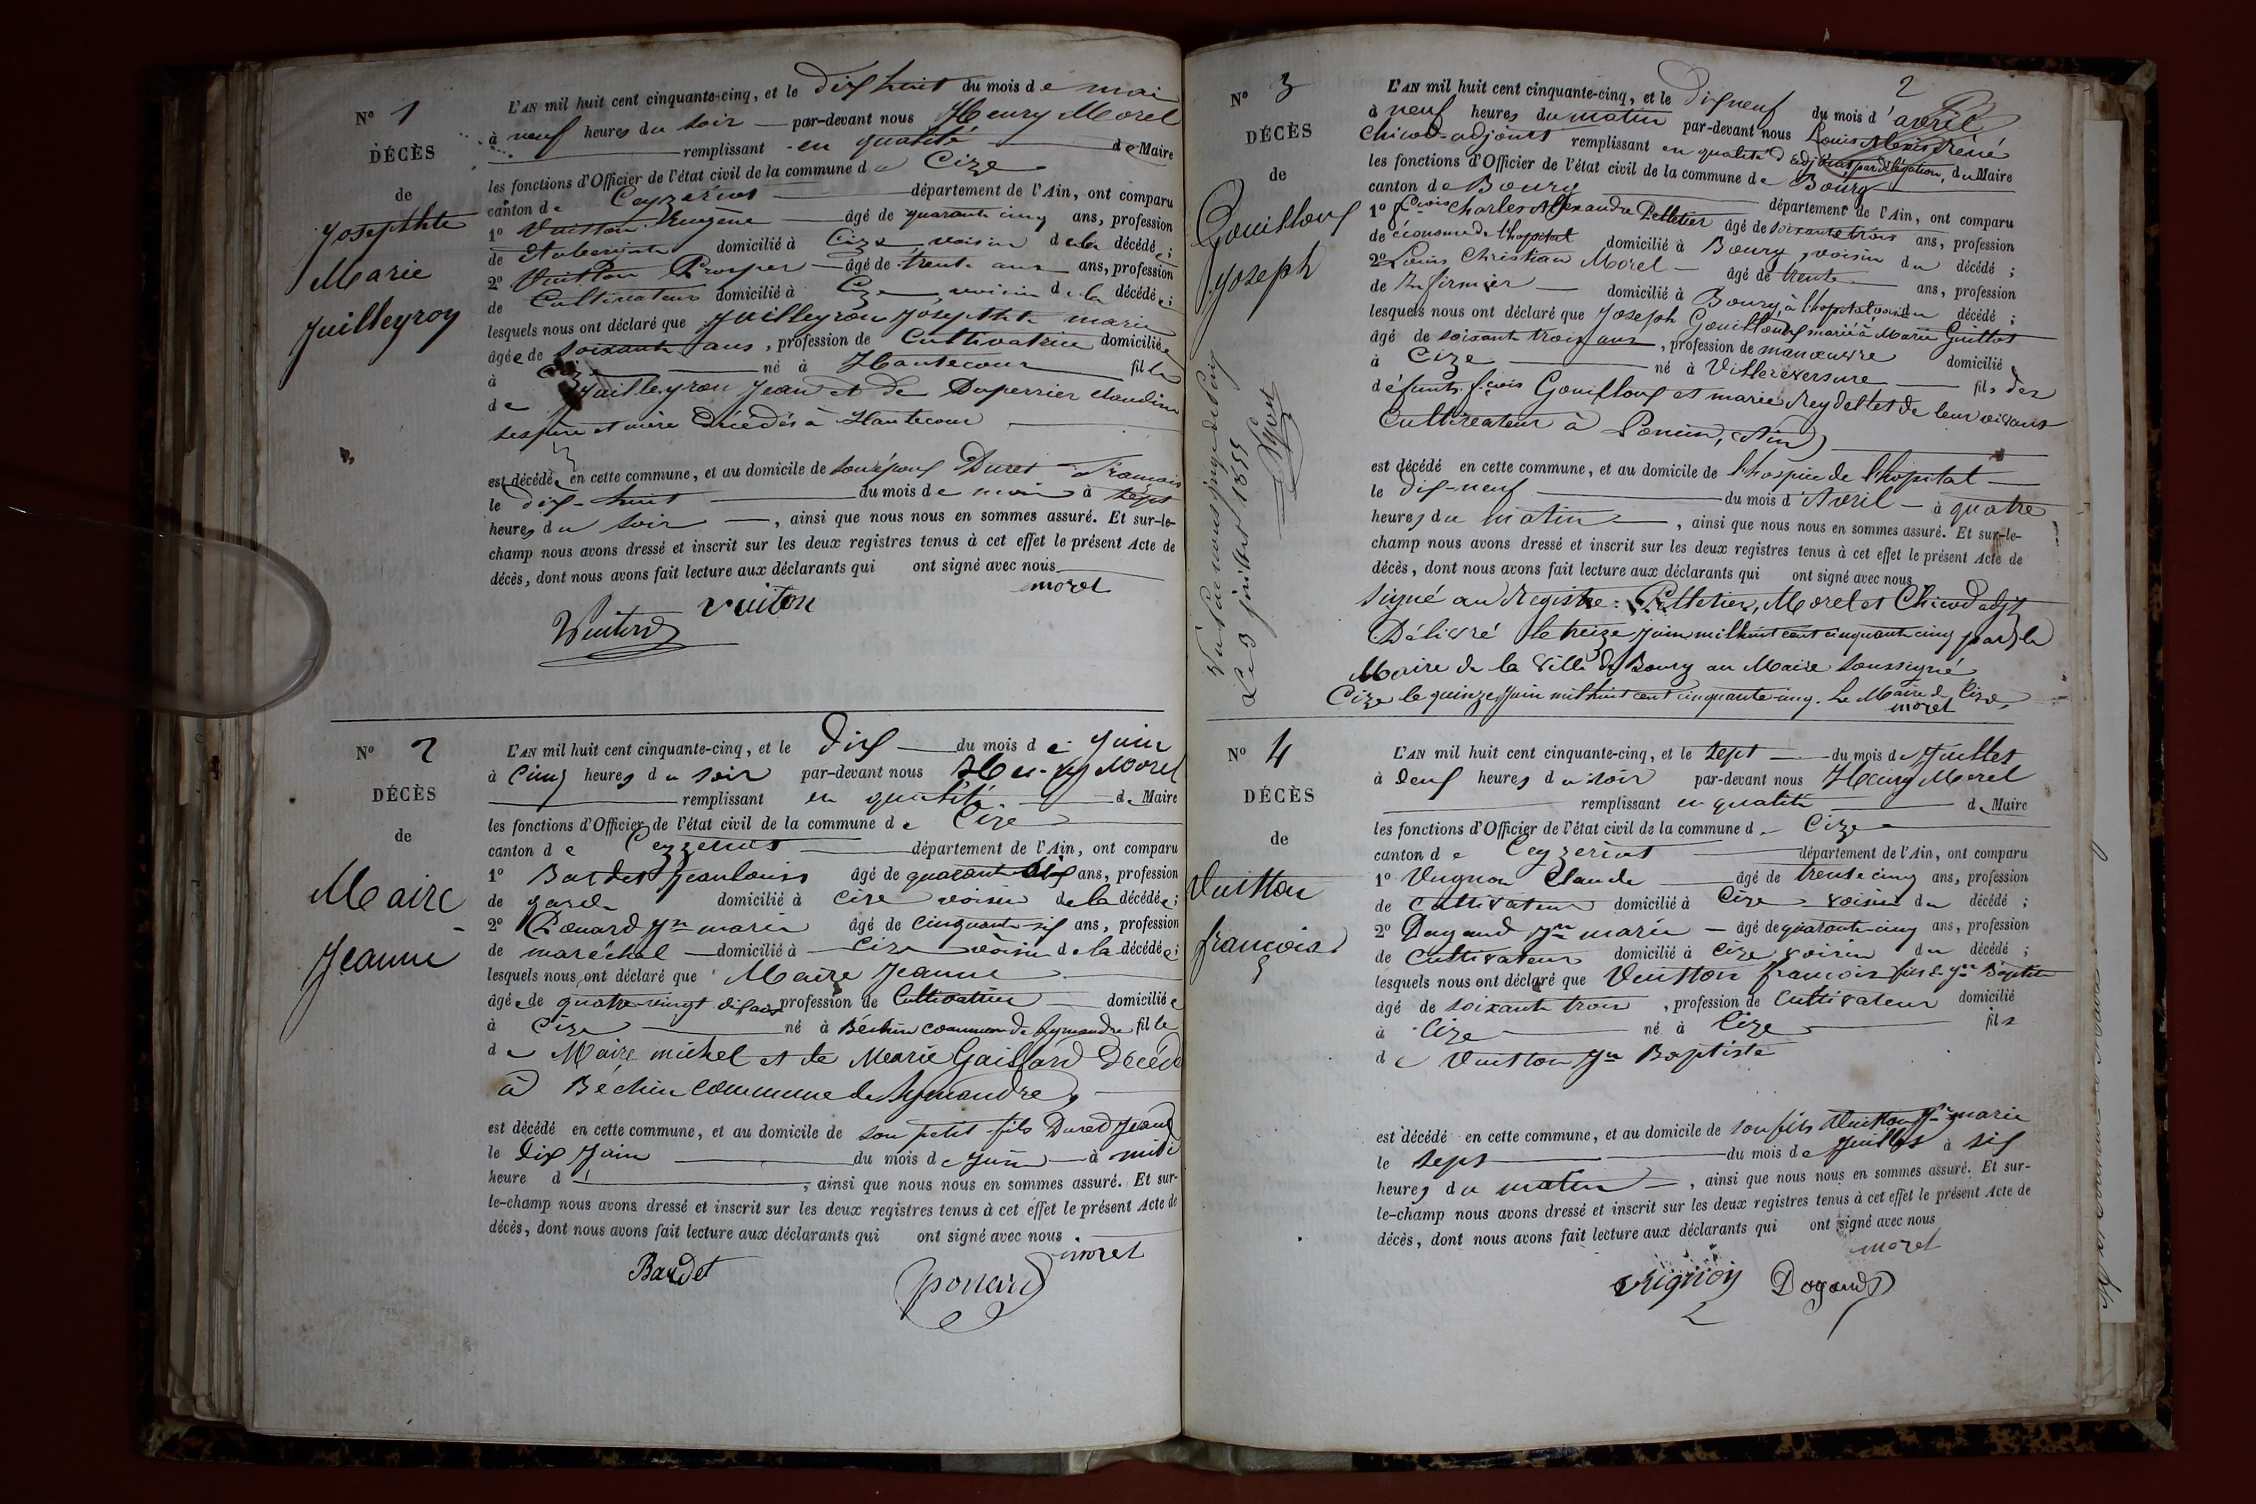 N° 1
DÉCÈS
de
Josephte
Marie
Juilleyron
L'AN mil huit cent cinquante-cinq, et le dix huit du mois de mai
à neuf heures du soir par-devant nous Henry Morel
remplissant en qualité de Maire
les fonctions d'Officier de l'état civil de la commune de Cize
canton de Ceyzeriat département de l'Ain, ont comparu
1° Vuitton Eugène âgé de quarante cinq ans, profession
de domicilié à Cize, voisin de la décédée;
2° Vuitton Prosper âgé de trente ans ans, profession
de Cultivateur domicilié à Cize, voisin de la décédée;
lesquels nous ont déclaré que Juilleyron Josephte marie
âgée de soixante ans, profession de Cultivatrice domiciliée
à né à Hautecour fille
de Juilleyron Jean et de Duperrier claudine
ses père et mère Décédés à Hautecour
est décédée en cette commune, et au domicile de son époux Duret François
le dix-huit du mois de mai à sept
heures du soir, ainsi que nous nous en sommes assuré. Et sur-le-
champ nous avons dressé et inscrit sur les deux registres tenus à cet effet le présent Acte de
décès, dont nous avons fait lecture aux déclarants qui ont signé avec nous
morel
Vuiton vuiton
N° 2
DÉCÈS
de
Maire
Jeanne
L'AN mil huit cent cinquante-cinq, et le dix du mois de Juin
à Cinq heures du soir par-devant nous Henry Morel
remplissant en qualité de Maire
les fonctions d'Officier de l'état civil de la commune de Cize
canton de Ceyzeriat département de l'Ain, ont comparu
1° Bardet Jean louis âgé de quarante ans, profession
de garde domicilié à Cize voisin de la décédée;
2° Ponard Jn marie âgé de cinquante six ans, profession
de maréchal domicilié à Cize voisin de la décédée;
lesquels nous ont déclaré que Maire Jeanne
âgée de quatre-vingt dix ans profession de Cultivatrice domiciliée
à Cize né à Béchin commune de Symandre fille
de Maire michel et de Marie Gaillard Décéd
à Béchin commune de Symandre,
est décédé en cette commune, et au domicile de son petit-fils Duret Jean
le Dix Juin du mois de Juin à midi
heure d , ainsi que nous nous en sommes assuré. Et sur-
le-champ nous avons dressé et inscrit sur les deux registres tenus à cet effet le présent Acte de
décès, dont nous avons fait lecture aux déclarants qui ont signé avec nous
morel
Bardet ponard
2
N° 3
DÉCÈS
de
Gouilloux
Joseph
Vu par nous juge de Paix
Le 3 juillet 1855
L'AN mil huit cent cinquante-cinq, et le Dix neuf du mois d'avril
à neuf heures du matin par-devant nous Louis Alexis Réné
Chicod-adjoint remplissant en qualité d'adjoint par délégation, du Maire
les fonctions d'Officier de l'état civil de la commune de Bourg
canton de Bourg département de l'Ain, ont comparu
1° fçois Charles Alexandre Pelletier âgé de soixante trois ans, profession
de économe de l'hopital domicilié à Bourg, voisin du décédé;
2° Louis Christian Morel âgé de trente ans, profession
de Infirmier domicilié à Bourg, à l'hopital voisin du décédé;
lesquels nous ont déclaré que Joseph Gouilloux marié à Marie Guillot
âgé de soixante trois ans, profession de manœuvre domicilié
à Cize né à Villereversure fils des
défunts fçois Gouilloux et marie Reydellet de leur vivant
Cultivateur à Poncin, (Ain)
est décédé en cette commune, et au domicile de l'hospice de l'hopital
le dix-neuf du mois d'Avril à quatre
heures du matin, ainsi que nous nous en sommes assuré. Et sur-le-
champ nous avons dressé et inscrit sur les deux registres tenus à cet effet le présent Acte de
décès, dont nous avons fait lecture aux déclarants qui ont signé avec nous
Signé au Registre: Pelletier, Morel et Chicod adjt
Délivré le treize Juin mil huit cent cinquante cinq par le
Maire de la Ville de Bourg au Maire soussigné
Cize le quinze Juin mil huit cent cinquante-cinq. Le Maire de Cize,
morel
N° 4
DÉCÈS
de
Vuitton
francois
L'AN mil huit cent cinquante-cinq, et le sept du mois de Juillet
à deux heures du soir par-devant nous Henry Morel
remplissant en qualité de Maire
les fonctions d'Officier de l'état civil de la commune de Cize
canton de Ceyzeriat département de l'Ain, ont comparu
1° Vugnon Claude âgé de trente cinq ans, profession
de Cultivateur domicilié à Cize voisin du décédé;
2° Dagaud Jn marie âgé de quarante-cinq ans, profession
de Cultivateur domicilié à Cize voisin du décédé;
lesquels nous ont déclaré que Vuitton francois fils de Jn Baptiste
âgé de soixante trois, profession de Cultivateur domicilié
à Cize né à Cize fils
de Vuitton Jn Baptiste
est décédé en cette commune, et au domicile de son fils Vuitton Jn marie
le sept du mois de Juillet à six
heures du matin, ainsi que nous nous en sommes assuré. Et sur-
le-champ nous avons dressé et inscrit sur les deux registres tenus à cet effet le présent Acte de
décès, dont nous avons fait lecture aux déclarants qui ont signé avec nous
morel
vugnion Dogaud